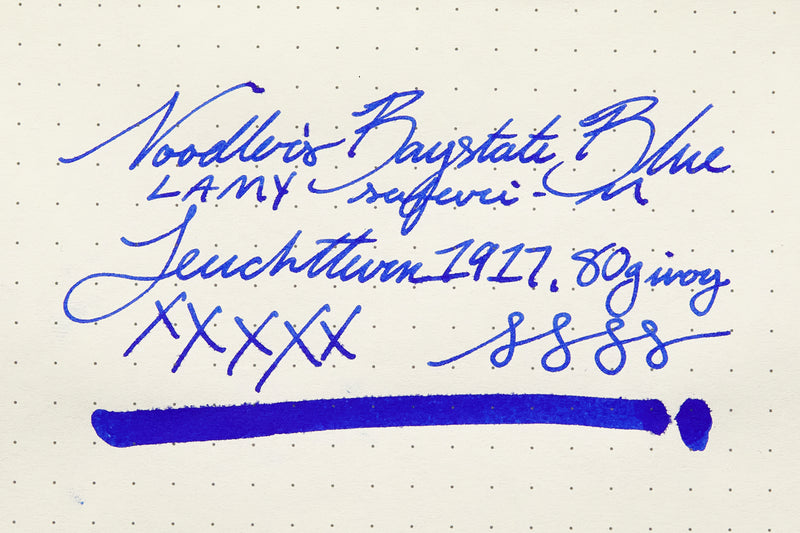 Noodler's Baystate Blue
LAMY safari - M
Leuchtturm 1917, 80g ivory
XXXXX